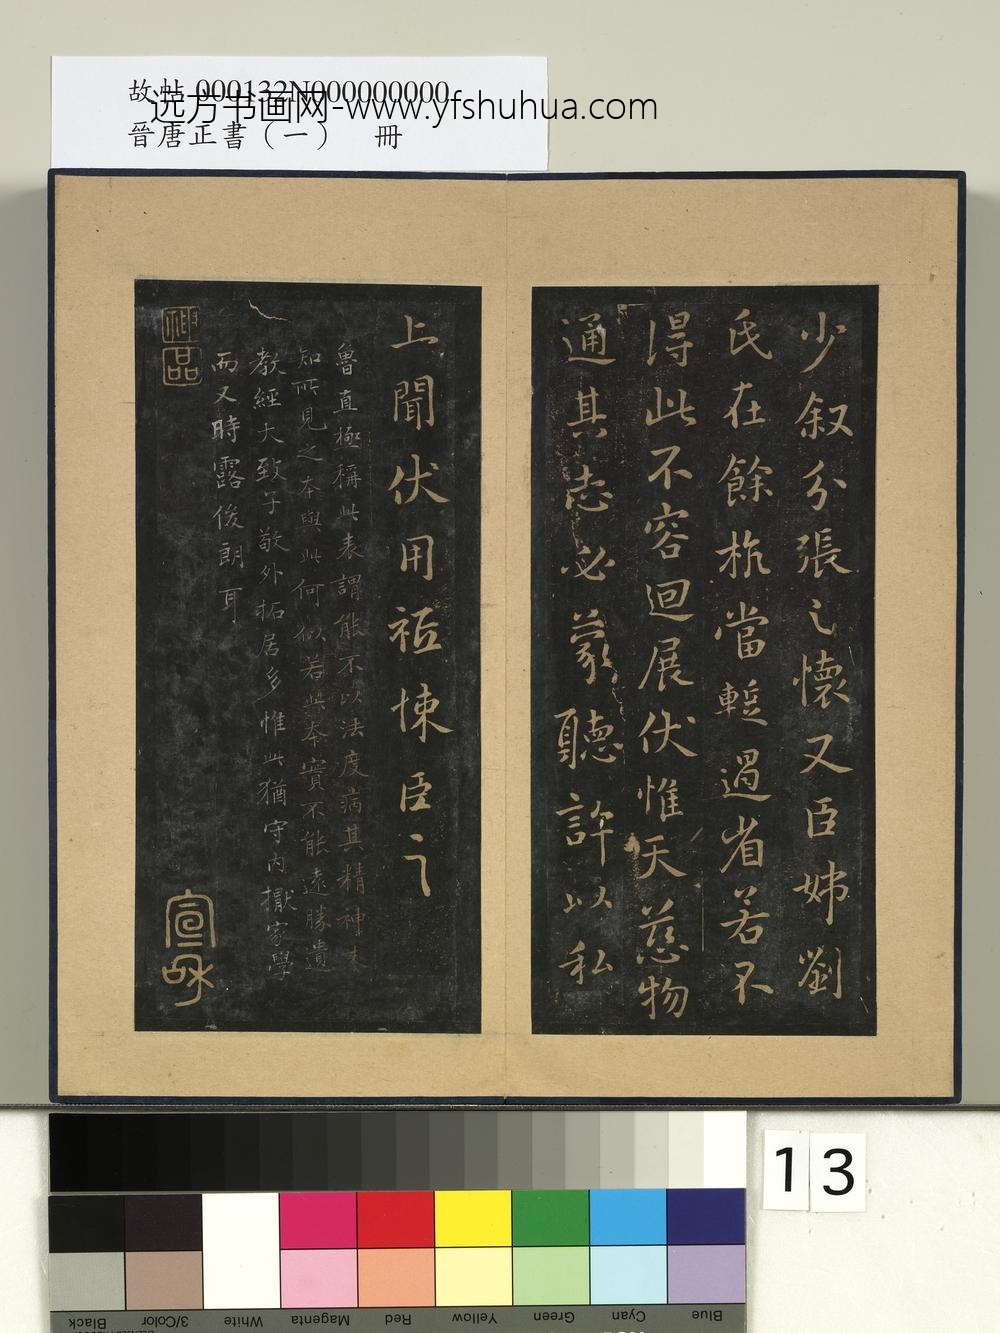 故帖 000132N000000000
选方书画网-www.yfshuhua.com
晉唐正書（一） 冊
少叙分張之懷又臣姊劉
氏在餘杭當蹔過省若不
得此不容迴展伏惟天慈物
通其志必蒙聽許以私
上聞伏用祗悚臣之
魯直極稱此表謂能不以法度病其精神未
知所見之本與此何似若此本實不能遠勝遺
教經大致子敬外拓居多惟此猶守內擫家學
而又時露俊朗耳
宣和
13
Black
3/Color
White
Magenta
Red
Yellow
Green
Cyan
Blue